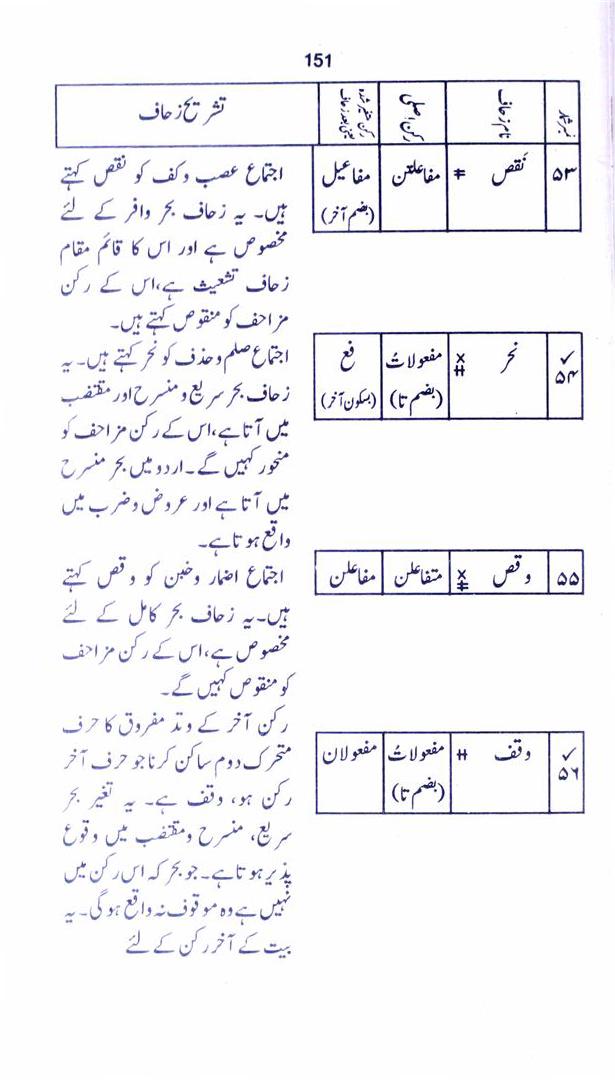 151
نمبر شمار
نام زحاف
رکن اصلی
رکن متغیر شدہ
یعنی بعد زحاف
تشریح زحاف
۵۳
نَقص
≠
مفاعلتن
مفاعیل
(بضم آخر)
اجتماع عصب وکف کو نقص کہتے
ہیں۔ یہ زحاف بحر وافر کے لئے
مخصوص ہے اور اس کا قائم مقام
زحاف تشعیث ہے،اس کے رکن
مزاحف کو منقوص کہتے ہیں۔
✓
۵۴
نحر
×
#
مفعولاتُ
(بضم تا)
فع
(بسکون آخر)
اجتماع صلم وحذف کو نحر کہتے ہیں۔ یہ
زحاف بحر سریع و منسرح اور مقتضب
میں آتا ہے،اس کے رکن مزاحف کو
منحور کہیں گے۔اردو میں بحر منسرح
میں آتا ہے اور عروض وضرب میں
واقع ہوتا ہے۔
۵۵
وقص
×
≠
متفاعلن
مفاعلن
اجتماع اضمار وخبن کو وقص کہتے
ہیں۔یہ زحاف بحر کامل کے لئے
مخصوص ہے،اس کے رکن مزاحف
کو منقوص کہیں گے۔
✓
۵۶
وقف
#
مفعولاتُ
(بضم تا)
مفعولان
رکن آخر کے وتد مفروق کا حرف
متحرک دوم ساکن کرنا جو حرف آخر
رکن ہو، وقف ہے۔ یہ تغیر بحر
سریع، منسرح ومقتضب میں وقوع
پذیر ہوتا ہے۔ جو بحر کہ اس رکن میں
نہیں ہے وہ موقوف نہ واقع ہوگی۔ یہ
بیت کے آخر رکن کے لئے